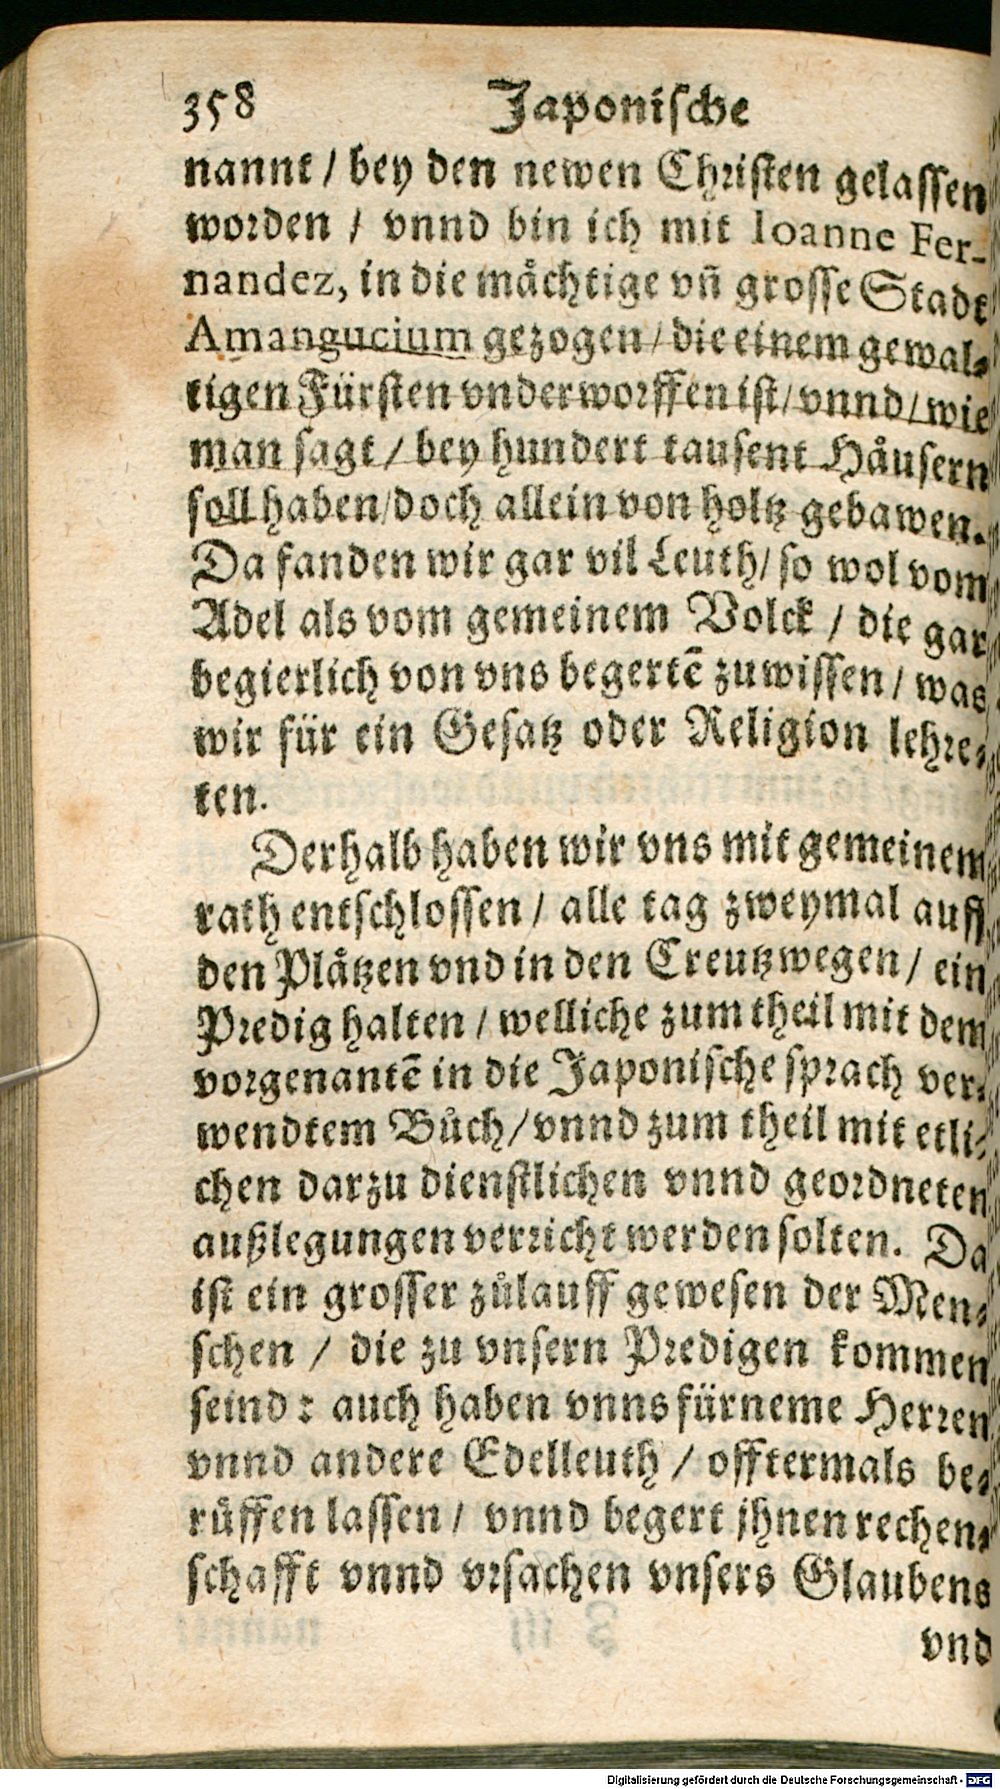 358 Japonische
nannt / bey den newen Christen gelassen
worden / vnnd bin ich mit Ioanne Fer-
nandez, in die måchtige vñ grosse Stadt
Amangucium gezogen / die einem gewal-
tigen Fürsten vnderworffen ist / vnnd / wie
man sagt / bey hundert tausent Håusern
soll haben / doch allein von holtz gebawen.
Da fanden wir gar vil Leuth / so wol vom
Adel als vom gemeinem Volck / die gar
begierlich von vns begertē zuwissen / was
wir für ein Gesatz oder Religion lehre-
ten.
Derhalb haben wir vns mit gemeinem
rath entschlossen / alle tag zweymal auff
den Plåtzen vnd in den Creutzwegen / ein
Predig halten / welliche zum theil mit dem
vorgenantē in die Japonische sprach ver-
wendtem Bůch / vnnd zum theil mit etli-
chen darzu dienstlichen vnnd geordneten
außlegungen verricht werden solten. Da
ist ein grosser zůlauff gewesen der Men-
schen / die zu vnsern Predigen kommen
seind : auch haben vnns fürneme Herren
vnnd andere Edelleuth / offtermals be-
růffen lassen / vnnd begert jhnen rechen-
schafft vnnd vrsachen vnsers Glaubens
vnd
Digitalisierung gefördert durch die Deutsche Forschungsgemeinschaft - DFG